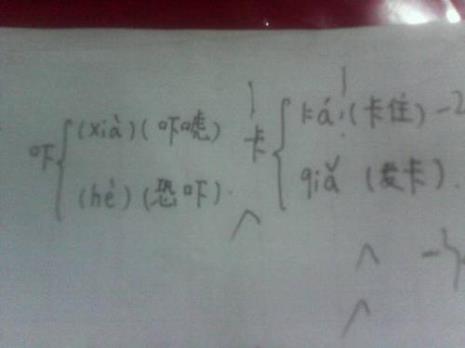 吓
(xià)(吓唬)
(hè)(恐吓).
卡
ká(卡住) -2
qiǎ (发卡).